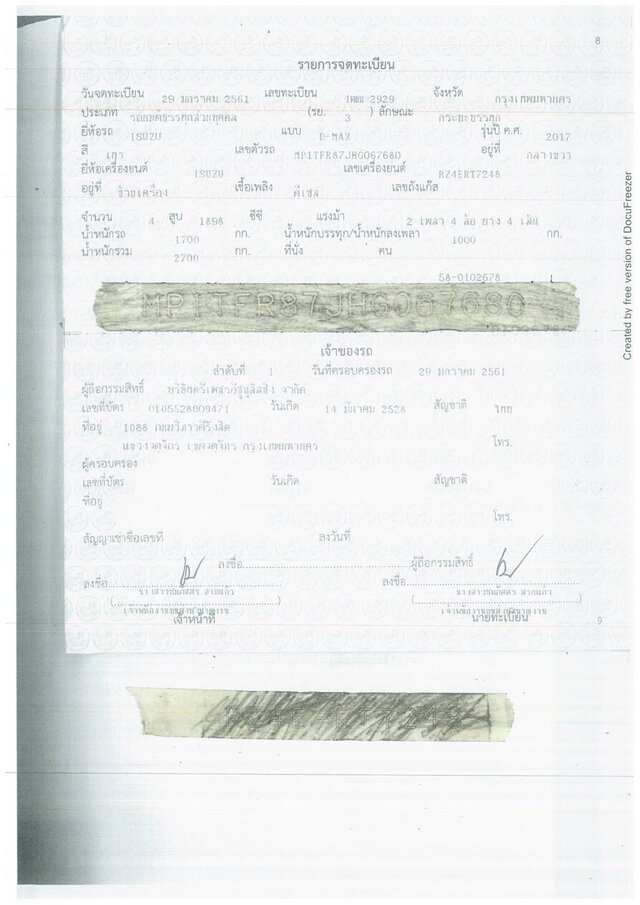 8
รายการจดทะเบียน
วันจดทะเบียน 29 มกราคม 2561 เลขทะเบียน 2929 จังหวัด กรุงเทพมหานคร
ประเภท รถยนต์บรรทุกส่วนบุคคล (รย. 3 ) ลักษณะ กระบะบรรทุก
ยี่ห้อรถ ISUZU แบบ D-MAX รุ่นปี ค.ศ. 2017
สี เทา เลขตัวรถ MP1TFR87JHG067680 อยู่ที่ กลางขวา
ยี่ห้อเครื่องยนต์ ISUZU เลขเครื่องยนต์ RZ4ERT7248
อยู่ที่ ซ้ายเครื่อง เชื้อเพลิง ดีเซล เลขถังแก๊ส
จำนวน 4 สูบ 1898 ซีซี แรงม้า 2 เพลา 4 ล้อ ยาง 4 เส้น
น้ำหนักรถ 1700 กก. น้ำหนักบรรทุก/น้ำหนักลงเพลา 1000 กก.
น้ำหนักรวม 2700 กก. ที่นั่ง คน
58-0102678
MP1TFR87JHG067680
เจ้าของรถ
ลำดับที่ 1 วันที่ครอบครองรถ 29 มกราคม 2561
ผู้ถือกรรมสิทธิ์ บริษัทตรีเพชรอีซูซุลิสซิ่ง จำกัด
เลขที่บัตร 0105528009471 วันเกิด 14 มีนาคม 2528 สัญชาติ ไทย
ที่อยู่ 1088 ถนนวิภาวดีรังสิต
แขวงจตุจักร เขตจตุจักร กรุงเทพมหานคร โทร.
ผู้ครอบครอง
เลขที่บัตร วันเกิด สัญชาติ
ที่อยู่
โทร.
สัญญาเช่าซื้อเลขที่ ลงวันที่
ลงชื่อ ผู้ถือกรรมสิทธิ์
ลงชื่อ ลงชื่อ
เจ้าหน้าที่ นายทะเบียน 9
Created by free version of DocuFreezer